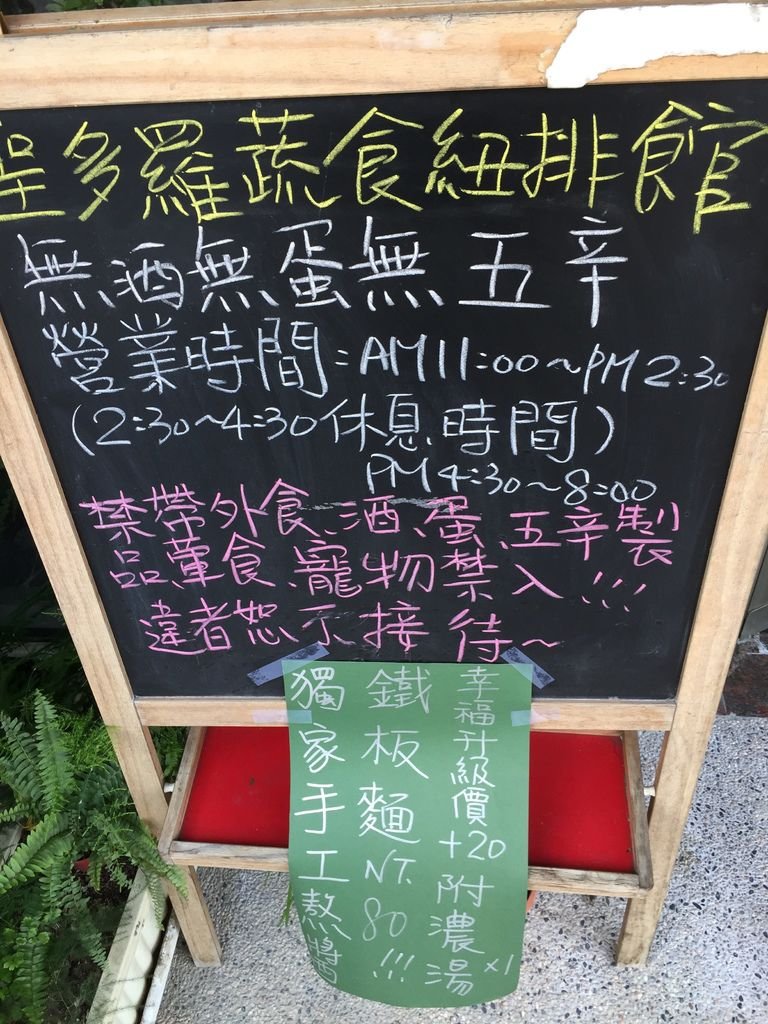 聖多羅蔬食紐排館
無酒無蛋無五辛
營業時間:AM11:00~PM2:30
(2:30~4:30休息時間)
PM4:30~8:00
禁帶外食、酒、蛋、五辛製
品、葷食、寵物禁入!!!
違者恕不接待~
幸福升級價+20附濃湯x1
鐵板麵NT.80!!!
獨家手工熬醬